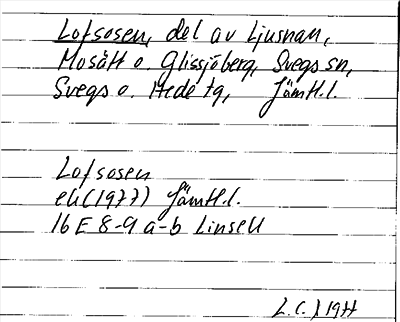 Lofsosen, del av Ljusnan,
Mosätt o. Glissjöberg, Svegs sn,
Svegs o. Hede tg, Jämtl.l.
Lofsosen
ek(1977) Jämtl.l.
16 E 8-9 a-b Linsell
L.C.) 1977